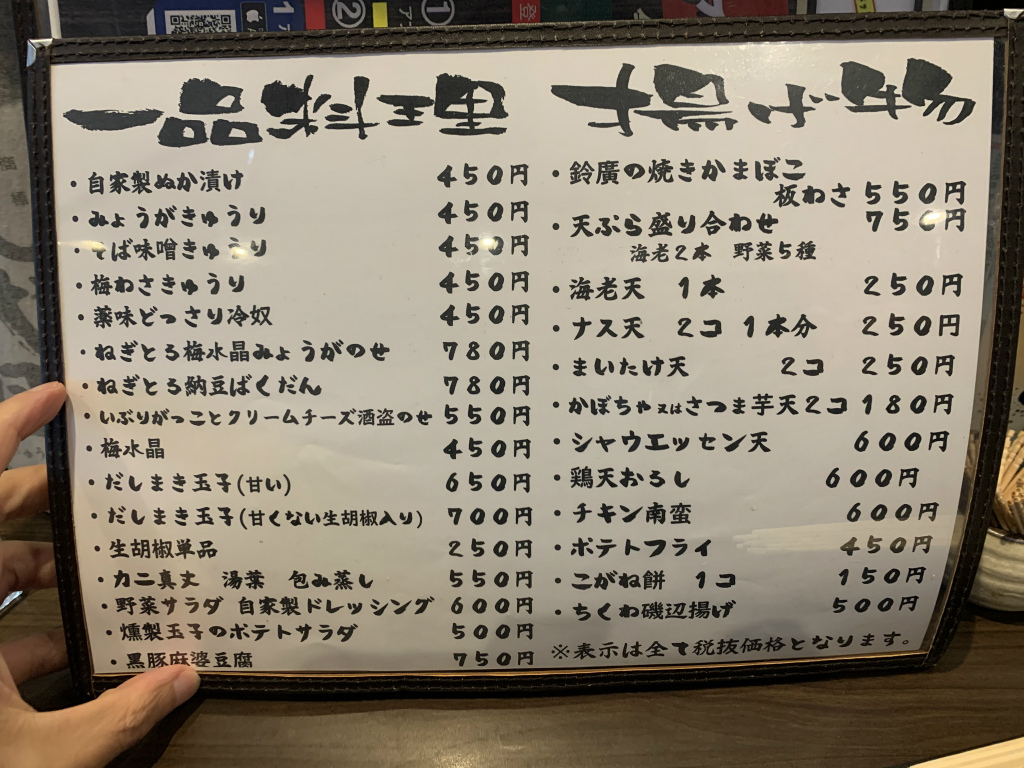 ② ア ① 登
一品
・自家製ぬか漬け 450円
・みょうがきゅうり 450円
・そば味噌きゅうり 450円
・梅わさきゅうり 450円
・薬味どっさり冷奴 450円
・ねぎとろ梅水晶みょうがのせ 780円
・ねぎとろ納豆ばくだん 780円
・いぶりがっことクリームチーズ酒盗のせ 550円
・梅水晶 450円
・だしまき玉子(甘い) 650円
・だしまき玉子(甘くない生胡椒入り) 700円
・生胡椒単品 250円
・カニ真丈 湯葉 包み蒸し 550円
・野菜サラダ 自家製ドレッシング 600円
・燻製玉子のポテトサラダ 500円
・黒豚麻婆豆腐 750円
揚げ物
・鈴廣の焼きかまぼこ
板わさ 550円
・天ぷら盛り合わせ 750円
海老2本 野菜5種
・海老天 1本 250円
・ナス天 2コ 1本分 250円
・まいたけ天 2コ 250円
・かぼちゃ又はさつま芋天2コ 180円
・シャウエッセン天 600円
・鶏天おろし 600円
・チキン南蛮 600円
・ポテトフライ 450円
・こがね餅 1コ 150円
・ちくわ磯辺揚げ 500円
※表示は全て税抜価格となります。